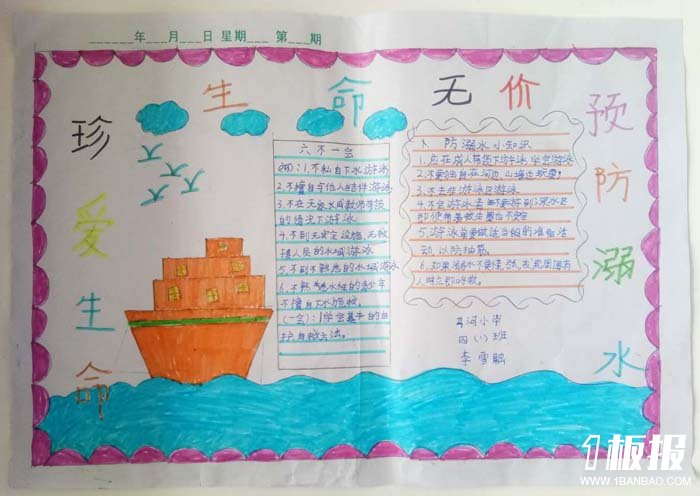 ______年___月___日 星期___ 第___期
生命无价
珍爱生命
预防溺水
六不一会
1.不私自下水游泳
2.不擅自与他人结伴游泳
3.不在无家长或教师带领
的情况下游泳
4.不到无安全设施、无救
援人员的水域游泳
5.不到不熟悉的水域游泳
6.不熟悉水性的
不擅自下水施救
(一会):1学会基本的自
护自救方法。
防溺水小知识
1.应在成人带领下游泳,学会游泳
2.不要独自在河边、山塘边玩耍
3.不去非游泳区游泳
4.不会游泳者,不要游到深水区
即使带着救生圈也不安全
5.游泳前要做适当的准备活
动,以防抽筋。
6.如果溺水不要慌张,发现周围有
人时立即呼救。
河小学
四(1)班
李雪融
1板报
WWW.1BANBAO.COM